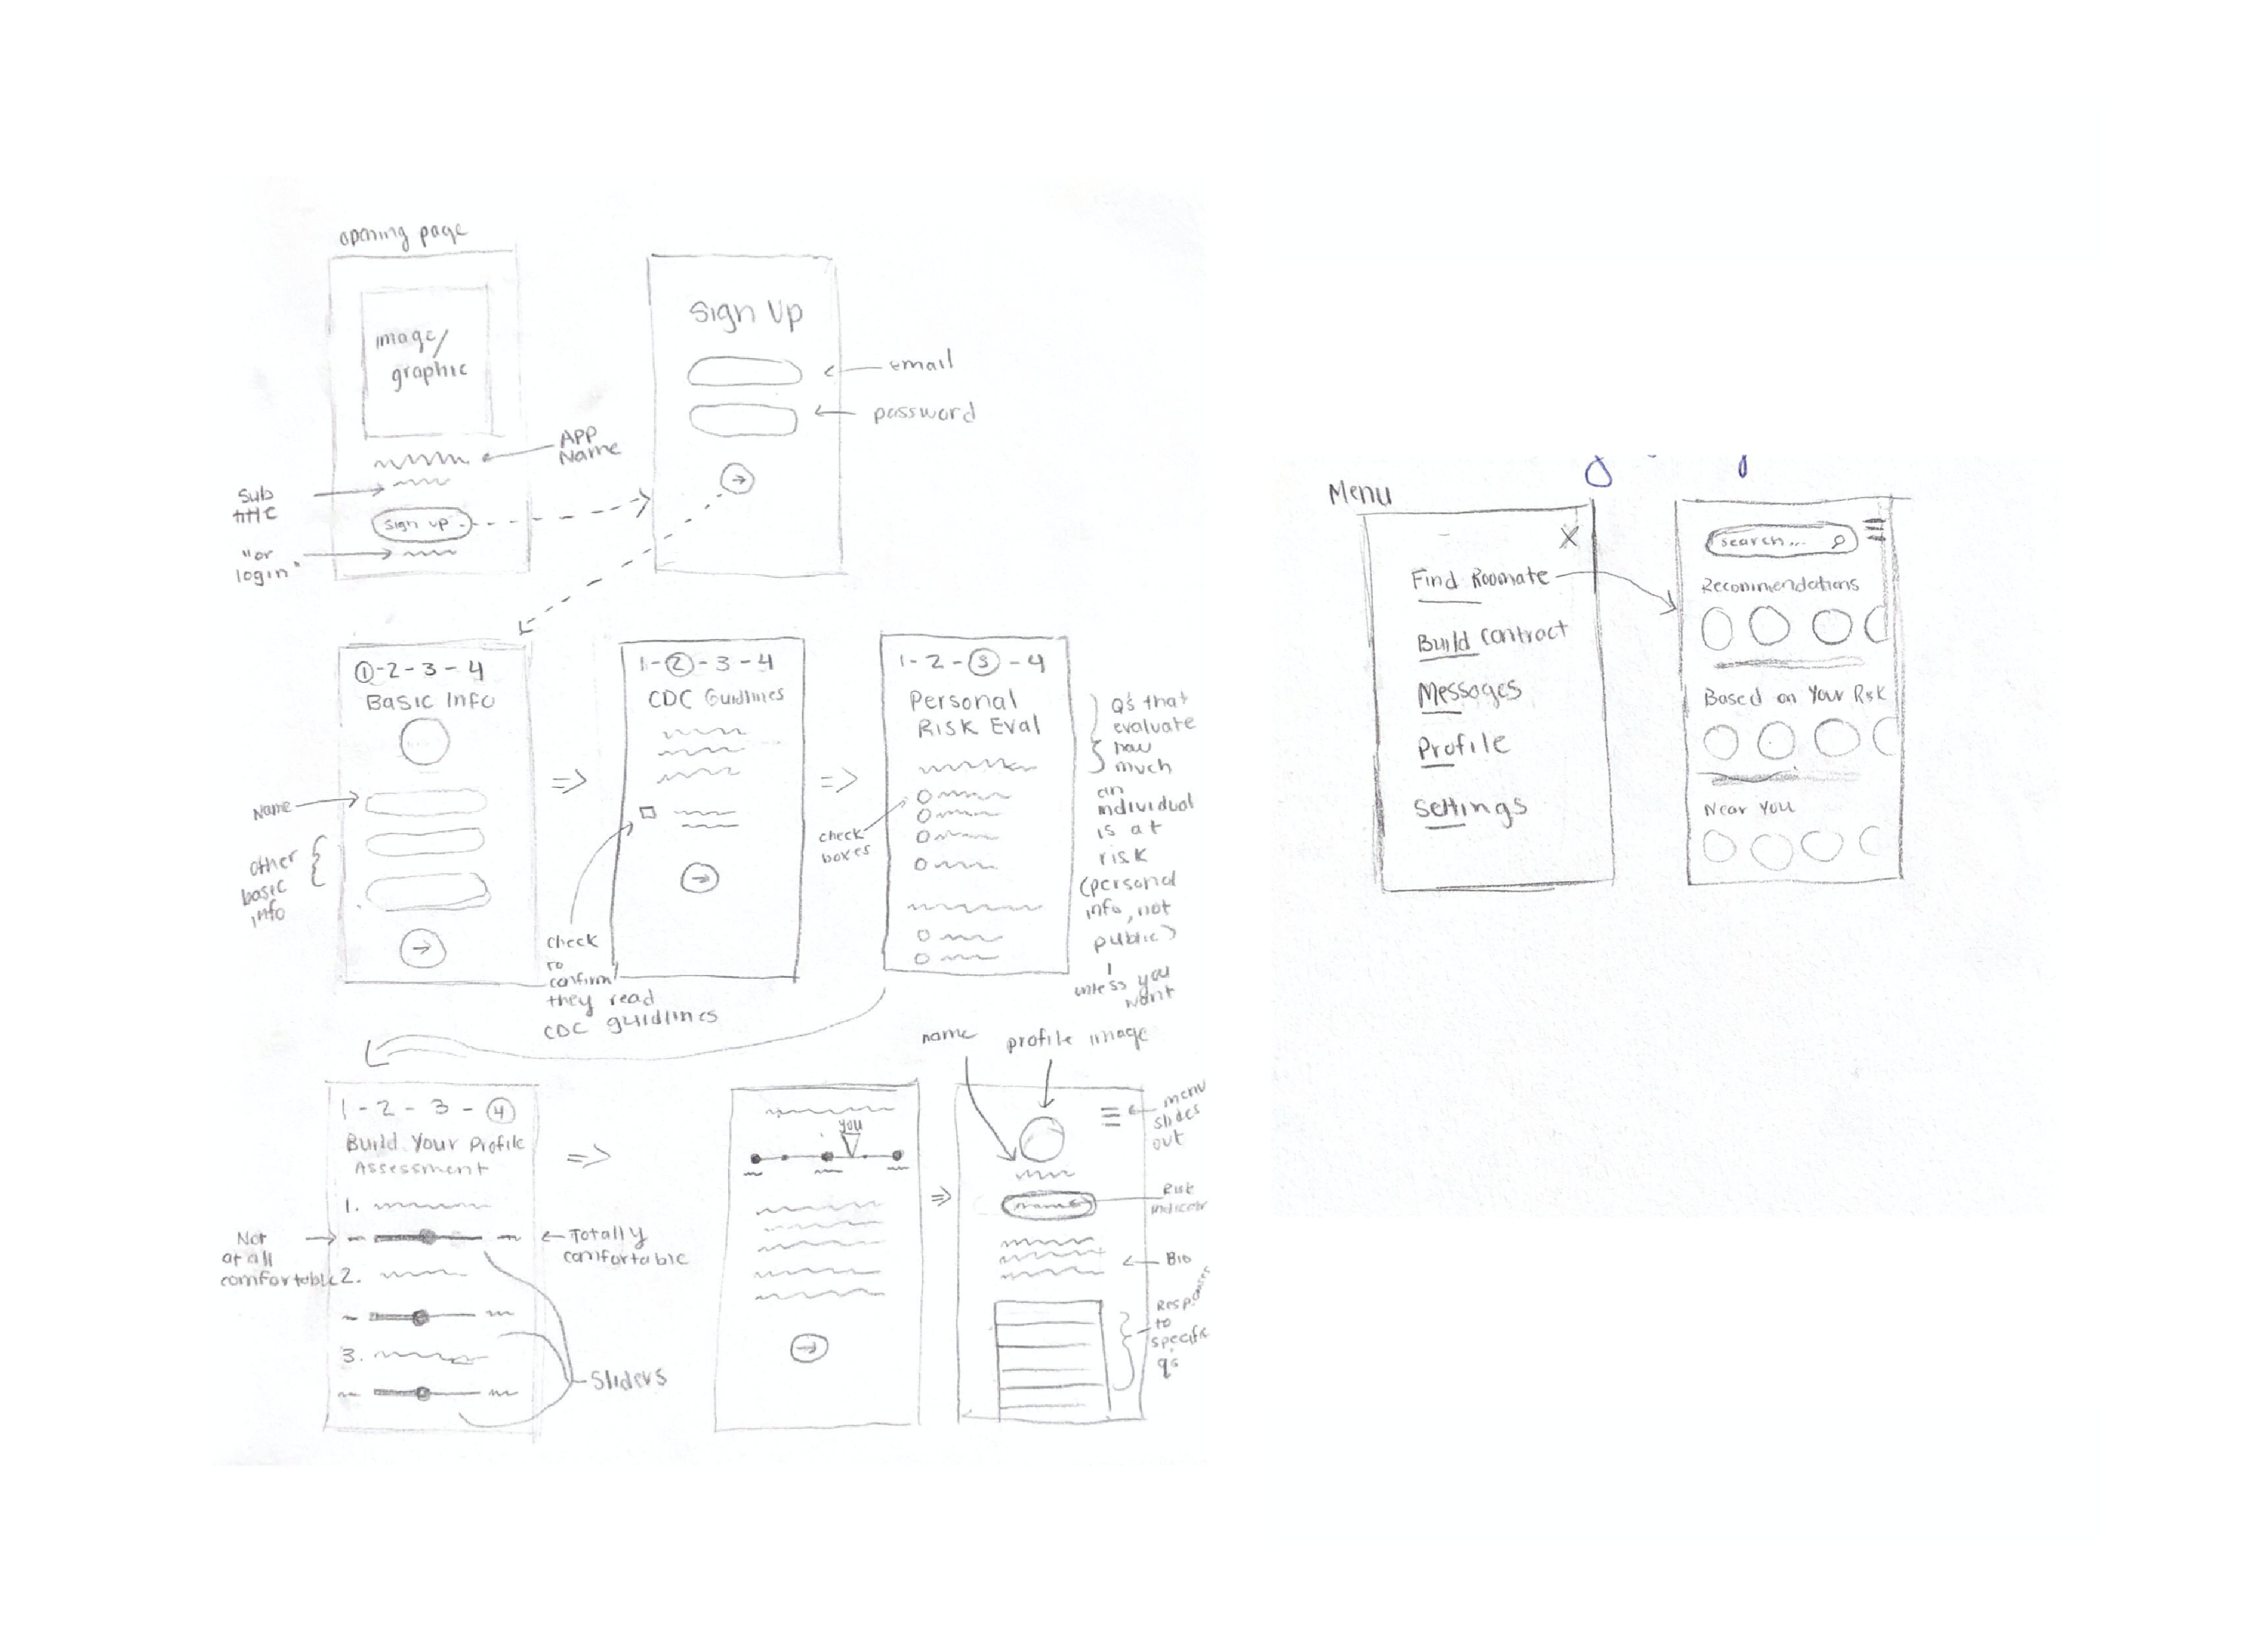 opening page
image/
graphic
APP
Name
Sub
title
sign up
"or
login"
Sign Up
email
password
1-2-3-4
Basic Info
Name
other
basic
info
1-2-3-4
CDC Guidlines
check
to
confirm
they read
CDC guidlines
1-2-3-4
Personal
Risk Eval
check
boxes
Q's that
evaluate
how
much
an
individual
is at
risk
(personal
info, not
public)
unless you
want
1-2-3-4
Build Your Profile
Assessment
1.
Not
at all
comfortable
Totally
comfortable
2.
3.
Sliders
you
name
profile image
menu
slides
out
Risk
indicator
Bio
Responses
to
specific
q's
Menu
X
Find Roomate
Build contract
Messages
Profile
Settings
search...
Recommendations
Based on Your Risk
Near You